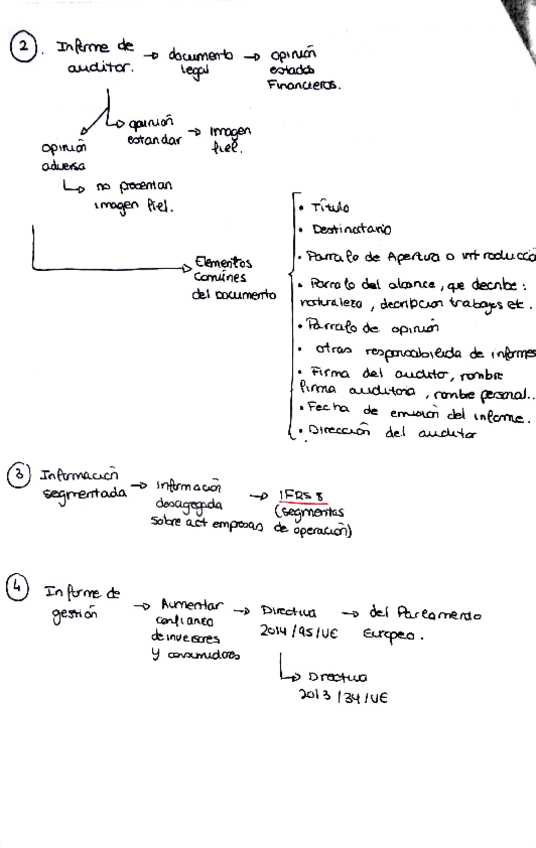 ② . Informe de auditor. → documento legal → opinión estados Financieros.
↳ opinión estandar → Imagen fiel.
opinión adversa
↳ no presentan imagen fiel.
→ Elementos comunes del documento
• Título
• Destinatario
• Parrafo de Apertura o introducció
• Parrafo del alcance, que decribe:
naturaleza, decribcion trabajos etc.
• Parrafo de opinión
• otras responsabileida de informes
• Firma del auditor, nombre
firma auditoria, nombe personal..
• Fecha de emisión del informe.
• Dirección del auditor
③ Información segmentada → información desagegada sobre act empresas → IFRS 8 (segmentas de operación)
④ Informe de gestión → Aumentar confianza de inversores y consumidores → Directiva 2014/95/UE → del Parlamento Europeo.
↳ Directiva 2013/34/UE